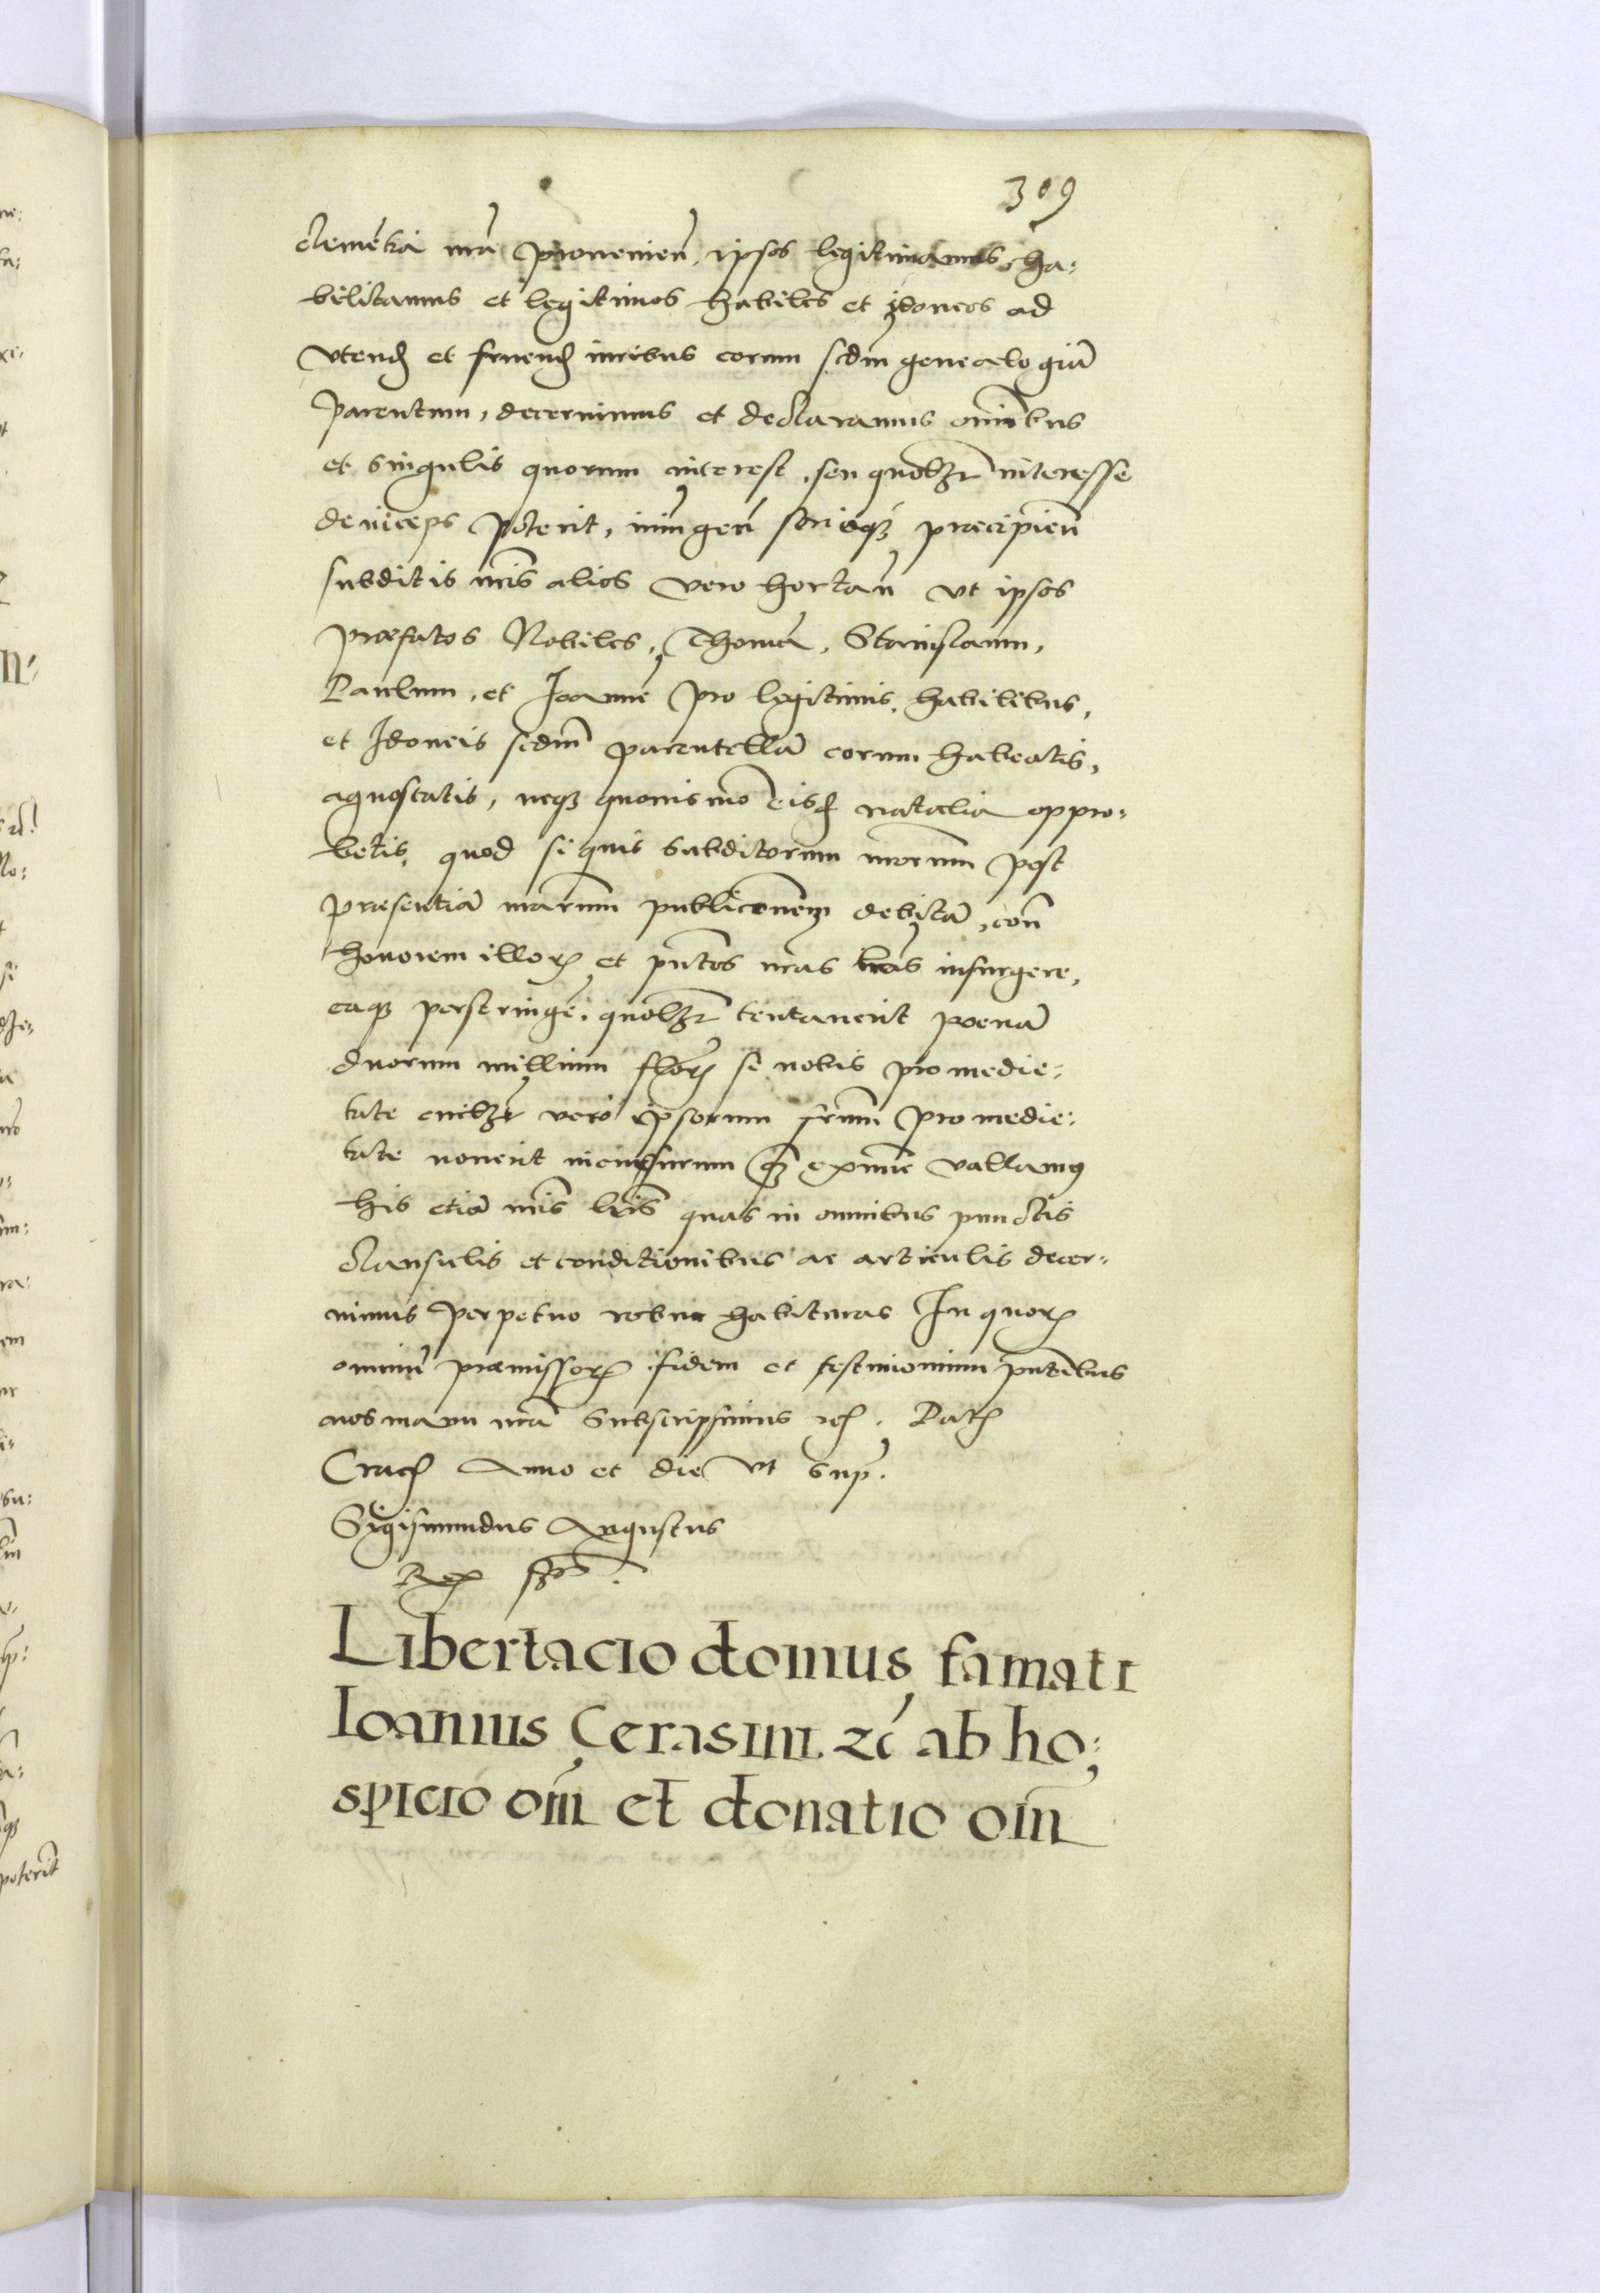 309
clemētia nrā provenien̄ ipsos legitimamus, ha:
bilitamus et legitimos habiles et ydoneos ad
vtend et fruend iuribus eorum scdm genealogiā
parentum, decernimus et declaramus omībus
et singulis quorum interest, seu quolzt interesse
deinceps poterit, iniungen̄ serioq; precipien̄
subditis nrīs alios vero hortan̄ vt ipsos
prefatos Nobiles, Thomā, Stanislaum,
Paulum, et Joannē pro legitimis, habilibus,
et Idoneis scdm parentellā eorum habeatis,
agnoscatis, neq; quovis mō eisd natalia oppro:
betis, quod si quis subditorum nrorum post
presentiā nrarum publicconem debitā, con̄
honorem illor et pntes nras lrās insurgere,
eaq; perstringē, quolzt tentaverit poenā
duorum millium flor se nobis pro medie:
tate cuilzt vero ipsorum frūm pro medie:
tate noverit incursurum
his etiā nrīs lrīs quas in omnibus punctis
clausulis et conditionibus ac articulis decer:
nimus perpetuo robur habituras In quor
omniū premissor fidem et testimonium pntibus
nos manu nrā subscripsimus Dat
Crac Anno et die vt sup.
Sigismundus Augustus
Rex sst.
Libertacio domus famati
Ioannis Cerasini zc̄ ab ho;
spicio om̄ et donatio om̄